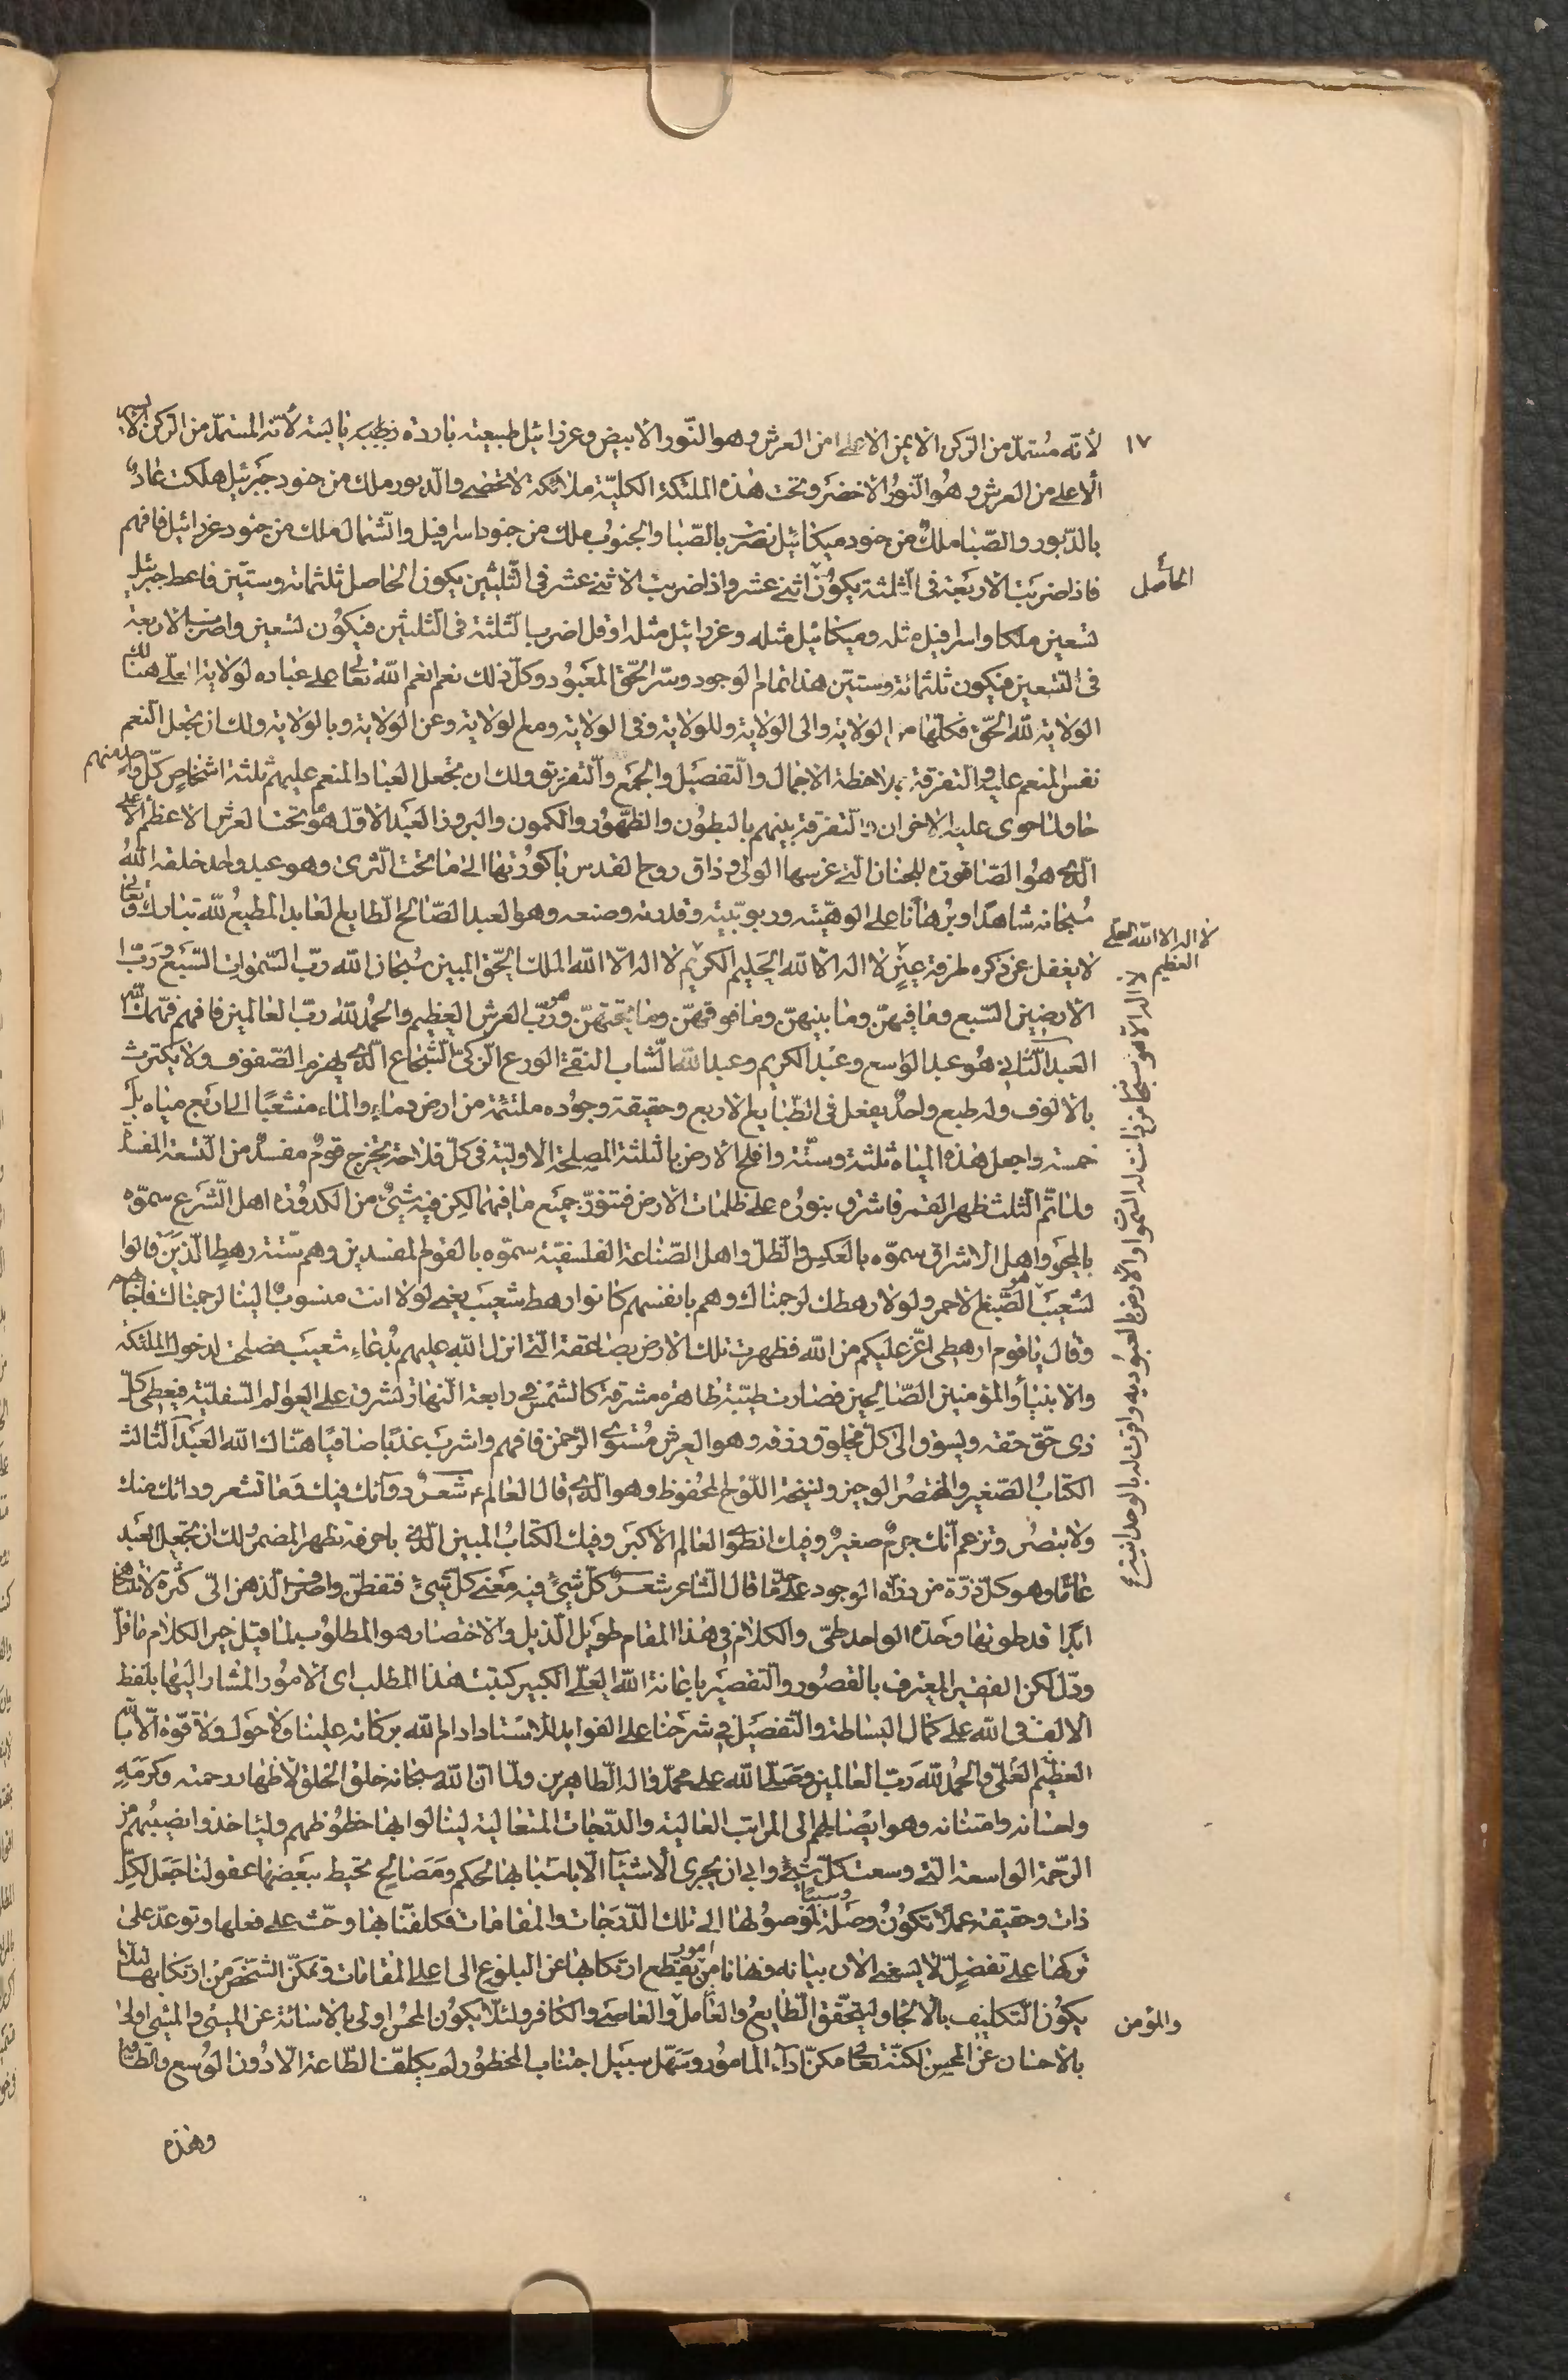 ١٧
لأنّه مُستمدّ من الركن الايمن الاعلى من العرش وهو النّور الابيض وعزرائيل طبيعته باردة يابسة لأنّه المستمدّ من الركن الايسر
الأعلى من العرش وهُو النّورُ الاخضر وتحت هٰذه الملئكة الكليّة ملائكة لا تحصى والدبور ملك من جنود جبرئيل هلكت عادٌ
بالدّبور والصّبا ملكٌ من جنود ميكائيل نصرت بالصّبا والجنوبُ ملك من جنود اسرافيل والشّمال ملك من جنود عزرائيل فافهم
الحاصل
فاذا ضربت الاربعة فى الثلثة يكونُ اثنى عشر واذا ضربت الاثنى عشر فى الثّلثين يكون الحاصل ثلثمائة وستّين فاعط جبرئيل
تسعين ملكا واسرافيل مثله وميكائيل مثله وعزرائيل مثله او قل اضرب الثلثة فى الثلثين فيكُون تسعين واضرب الاربعة
فى التسعين فيكون ثلثمائة وستين هذا تمام الوجود وسرّ الحقّ المعبُود وكلّ ذلك نعم انعم اللّه تعالى على عباده لولاية العلى هنالك
الولاية للّه الحقّ فكلّها من الولاية والى الولاية وللولاية وفى الولاية ومع الولاية وعن الولاية وبالولاية ولك ان تجعل النعم
نفس المنعم عليه والتفرقة بملاحظة الاجمال والتّفصيل والجمع والتّفريق ولك ان تجعل العباد المنعم عليهم ثلثة اشخاص كلّ واحد منهم
حاو لما حوى عليه الاخران والتّفرقة بينهم بالبطُون والظّهُور والكمون والبروز العبد الاوّل هو ما تحت العرش الاعظم الاعلى
الّذى هُو الصّاقورة للجنان الّتى غرسها الولى وذاق روح القدس باكورتها الى ما تحت الثّرى وهو عبد واحد خلقه اللّهُ
سُبحانه شاهدًا وبُرهانًا على الوهيّته وربوبيّته وقدرته وصنعه وهو العبد الصّالح الطّايع العابد المطيعُ للّه تبارك وتعالى
لا يغفل عن ذكره طرفة عينٍ لا اله الا اللّه الحليم الكريم لا اله الّا اللّه الملك الحقّ المبين سُبحان اللّه ربّ السّموات السّبع وربّ
الارضين السّبع وما فيهنّ وما بينهنّ وما فوقهنّ وما تحتهنّ وهو ربّ العرش العظيم والحمُد للّه ربّ العالمين فافهم فهّمك اللّه
العبد الثّانى هُو عبد الواسع وعبْد الكريم وعبد اللّه الشّاب النقىّ الورع الزكىّ الشّجاع الّذى يهزم الصّفوف ولا يكترث
بالالوف وله طبع واحدٌ يفعل فى الطّبايع الاربع وحقيقة وجُوده ملتئمة من ارض وماءٍ والماء منشعبًا الى اربع مياه بل
خمسة واجعل هٰذه المياه ثلثة وستّة وافلح الارض بالثلثة المصلحة الاوليّة فى كلّ فلاحة يخرج قومٌ مفسدٌ من التسعة المفسدة
ولمّا تمّ الثّلث ظهر القمر فاشرق بنوره على ظلمات الارض فتنوّر جميع ما فيها لكن فيه شىٌ من الكدورة اهل الشّرع سمّوه
بالمحو واهل الاشراق سمّوه بالعكس والظلّ واهل الصّناعة الفلسفيّة سمّوه بالقوم المفسدين وهم ستّة رهط الّذين قالوا
لشعيب الصّبغ الاحمر ولولا رهطك لرجمناك وهم بانفسهم كانوا رهط شعيب يعنى لولا انت منسوبٌ الينا لرجمناك فاجابهم
وقال يا قوم ارهطى اعزّ عليكم من اللّه فظهرت تلك الارض بصاعقة الّتى انزل اللّه عليهم بدُعاءِ شعيب فصلحت لدخول الملئكة
والانبيآء والمؤمنين الصّالحين فصارت طيّبة طاهرة مشرقة كالشّمس فى رابعة النّهار تشرق على العوالم السّفليّة فيعطى كلّ
ذى حقّ حقه ويسوق الى كلّ مخلوق رزقه وهو العرش مُستوى الرّحمٰن فافهم واشرب عذبًا صافيًا هنّاك اللّه العبد الثّالث
الكتابُ الصّغير والمختصُر الوجيز ونسخة اللّوح المحفوظ وهو الّذى قال العالم ع شعرٌ دوآئك فيك وما تشعر ودائك منك
ولا تبصُر وتزعم انّك جرمٌ صغيرٌ وفيك انطوى العالم الاكبر وفيك الكتابُ المبين الّذى باحرفه تظهر المضمر لك ان تجعل العبد
عامًّا وهو كلّ ذرّة من ذرّات الوجود على ما قال الشّاعر شعرٌ كلّ شىءٍ فيه معنى كلّ شىءٍ فتفطّن واصرف الذهن الىّ كثرة لا تتناهى
ابدًا قد طوتها وحدة الواحد طىّ والكلام فى هٰذا المقام طويل الذّيل والاختصار هو المطلوب لما قيل خير الكلام ما قلّ
ودلّ لكن الفقير المعترف بالقصُور والتقصير باعانة اللّه العلىّ الكبير كتبت هٰذا المطلب اى الامُور المشار اليها بلفظ
الالف فى اللّه على كمال البساطة والتّفصيل فى شرحنا على الفوايد للاستاد ادام اللّه بركاته علينا ولا حول ولا قوّة الّا باللّه
العظيم العلىّ والحمُد للّه ربّ العالمين وصلّى اللّه على محمّد واله الطّاهرين ولمّا انّ اللّه سبحانه خلق الخلق لاظهار رحمته وكرمه
واحسانه وامتنانه وهو ايصالهم الى المراتب العالية والدّرجات المتعالية لينالوا بها حظُوظهم وليأخذوا نصيبُهم من
الرّحمة الواسعة الّتى وسعت كلّ شىٍٔ وابى ان يجرى الاشيآء الّا باسبابها لحكم ومصالح تحيط ببعضها عقولنا جعل لكلّ
ذات وحقيقة عملًا تكوُنُ وصلةً وسببًا لوصولها الى تلك الدّرجات والمقامات فكلفنا بها وحثّ على فعلها وتوعّد على
تركها على تفضيلٍ لا يسعنى الان بيانه ونهانا من امور يقطع ارتكابها عن البلوغ الى اعلى المقامات وتمكّن الشخص من ارتكابها لئلّا
يكوُن التكليف بالالجاء وليتحقّق الطّايعُ والعاملُ والعاصى والكافر ولئلّا يكوُن المحسن اولى بالاسائة عن المسىٔ والمسىٔ اولى
والمؤمن
بالاحسان عن المحسن لكنّه تعالى مكنّ ادآء المامُور وسهّل سبيل اجتناب المحظُور لم يكلفنا الطّاعة الّا دُون الوُسع والطّاقة
وهٰذه
لا اله الا اللّه العلى
العظيم
لا اله الّا هو سبحان من دانت له السّموات والارض بالعبُوديه واقرت له بالوحدانية